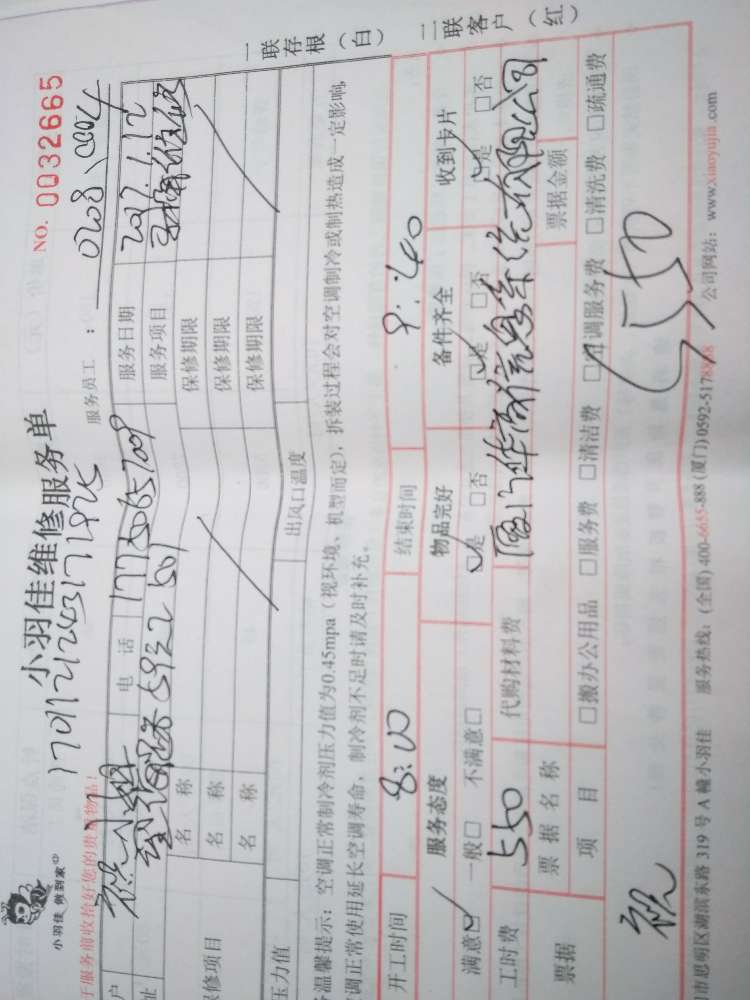 小羽佳维修服务单
NO. 0032665
小羽佳 做到家
1701121243171925
服务员工：0208、0004
于服务前收拾好您的贵重物品！
户
电 话 17750657009
服务日期 2017.1.12
址 501
服务项目
修项目 名 称 保修期限
名 称 保修期限
名 称 保修期限
压力值 出风口温度
温馨提示：空调正常制冷剂压力值为0.45mpa（视环境、机型而定），拆装过程会对空调制冷或制热造成一定影响，
调正常使用延长空调寿命，制冷剂不足时请及时补充。
一联存根（白）
二联客户（红）
开工时间 8:00 结束时间 9:40
服务态度 物品完好 备件齐全 收到卡片
满意☑ 一般□ 不满意□ ☑是 □否 ☑是 □否 ☑是 □否
工时费 550 代购材料费
票据 票据名称 票据金额
项 目 □搬办公用品 □服务费 □清洁费 □空调服务费 □清洗费 □疏通费
550
市思明区湖滨东路 319 号 A 幢小羽佳 服务热线：(全国) 400-6655-888 (厦门) 0592-5178868 公司网站：www.xiaoyujia.com